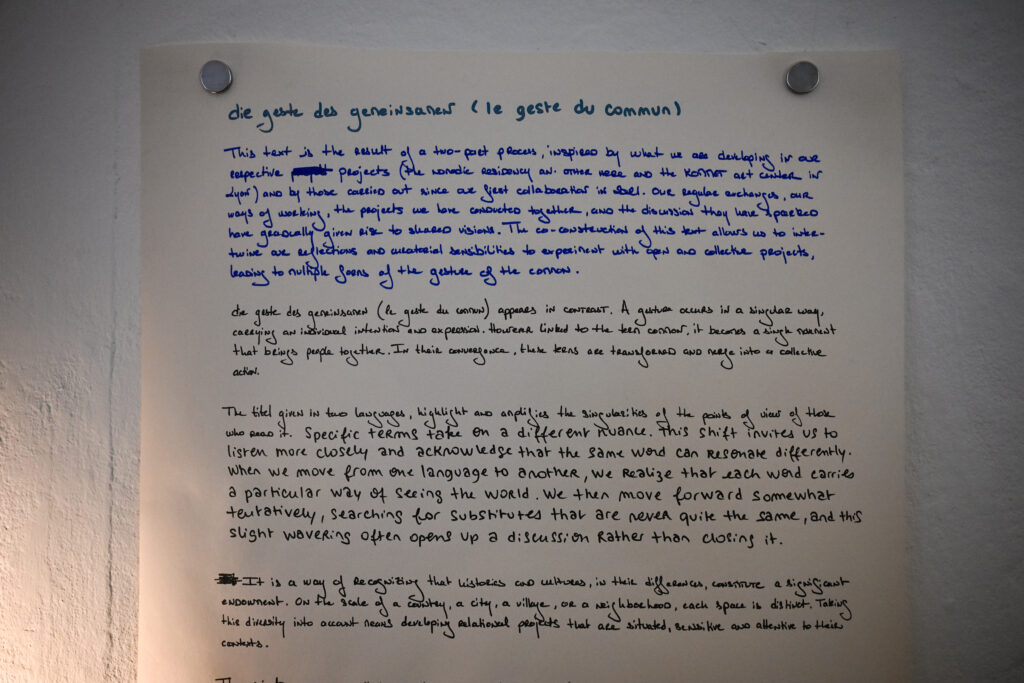 die geste des gemeinsamen (le geste du commun)
This text is the result of a two-part process, inspired by what we are developing in our
respective projects (the nomadic residency an- other here and the KOMMET art center in
Lyon) and by those carried out since our first collaboration in 2021. Our regular exchanges, our
ways of working, the projects we have conducted together, and the discussion they have sparked
have gradually given rise to shared visions. The co-construction of this text allows us to inter-
twine our reflections and curatorial sensibilities to experiment with open and collective projects,
leading to multiple forms of the gesture of the common.
die geste des gemeinsamen (le geste du commun) appears in contrast. A gesture occurs in a singular way,
carrying an individual intention and expression. However linked to the term common, it becomes a single movement
that brings people together. In their convergence, these terms are transformed and merge into a collective
action.
The titel given in two languages, highlight and amplifies the singularities of the points of view of those
who read it. Specific terms take on a different nuance. This shift invites us to
listen more closely and acknowledge that the same word can resonate differently.
When we move from one language to another, we realize that each word carries
a particular way of seeing the world. We then move forward somewhat
tentatively, searching for substitutes that are never quite the same, and this
slight wavering often opens up a discussion rather than closing it.
It is a way of recognizing that histories and cultures, in their differences, constitute a significant
endowment. On the scale of a country, a city, a village, or a neighborhood, each space is distinct. Taking
this diversity into account means developing relational projects that are situated, sensitive and attentive to their
contexts.